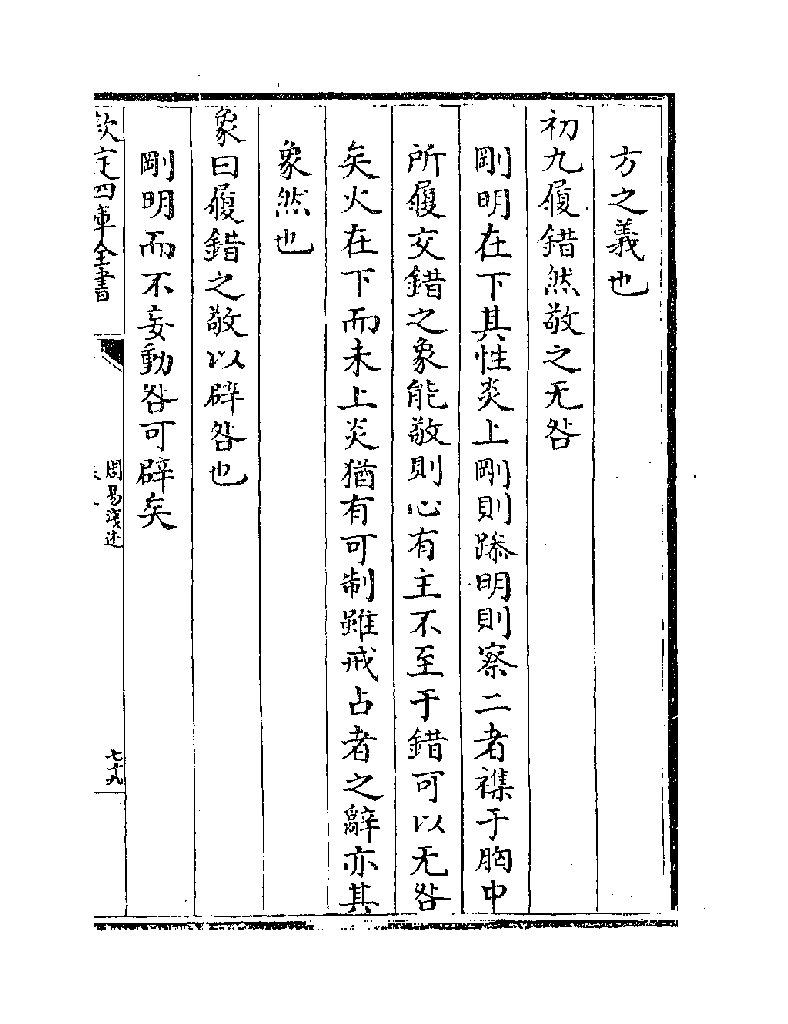 方之義也
初九履錯然敬之无咎
剛明在下其性炎上剛則躁明則察二者襍于胸中
所履交錯之象能敬則心有主不至于錯可以无咎
矣火在下而未上炎猶有可制雖戒占者之辭亦其
象然也
象曰履錯之敬以辟咎也
剛明而不妄動咎可辟矣
欽定四庫全書
周易淺述
七十九